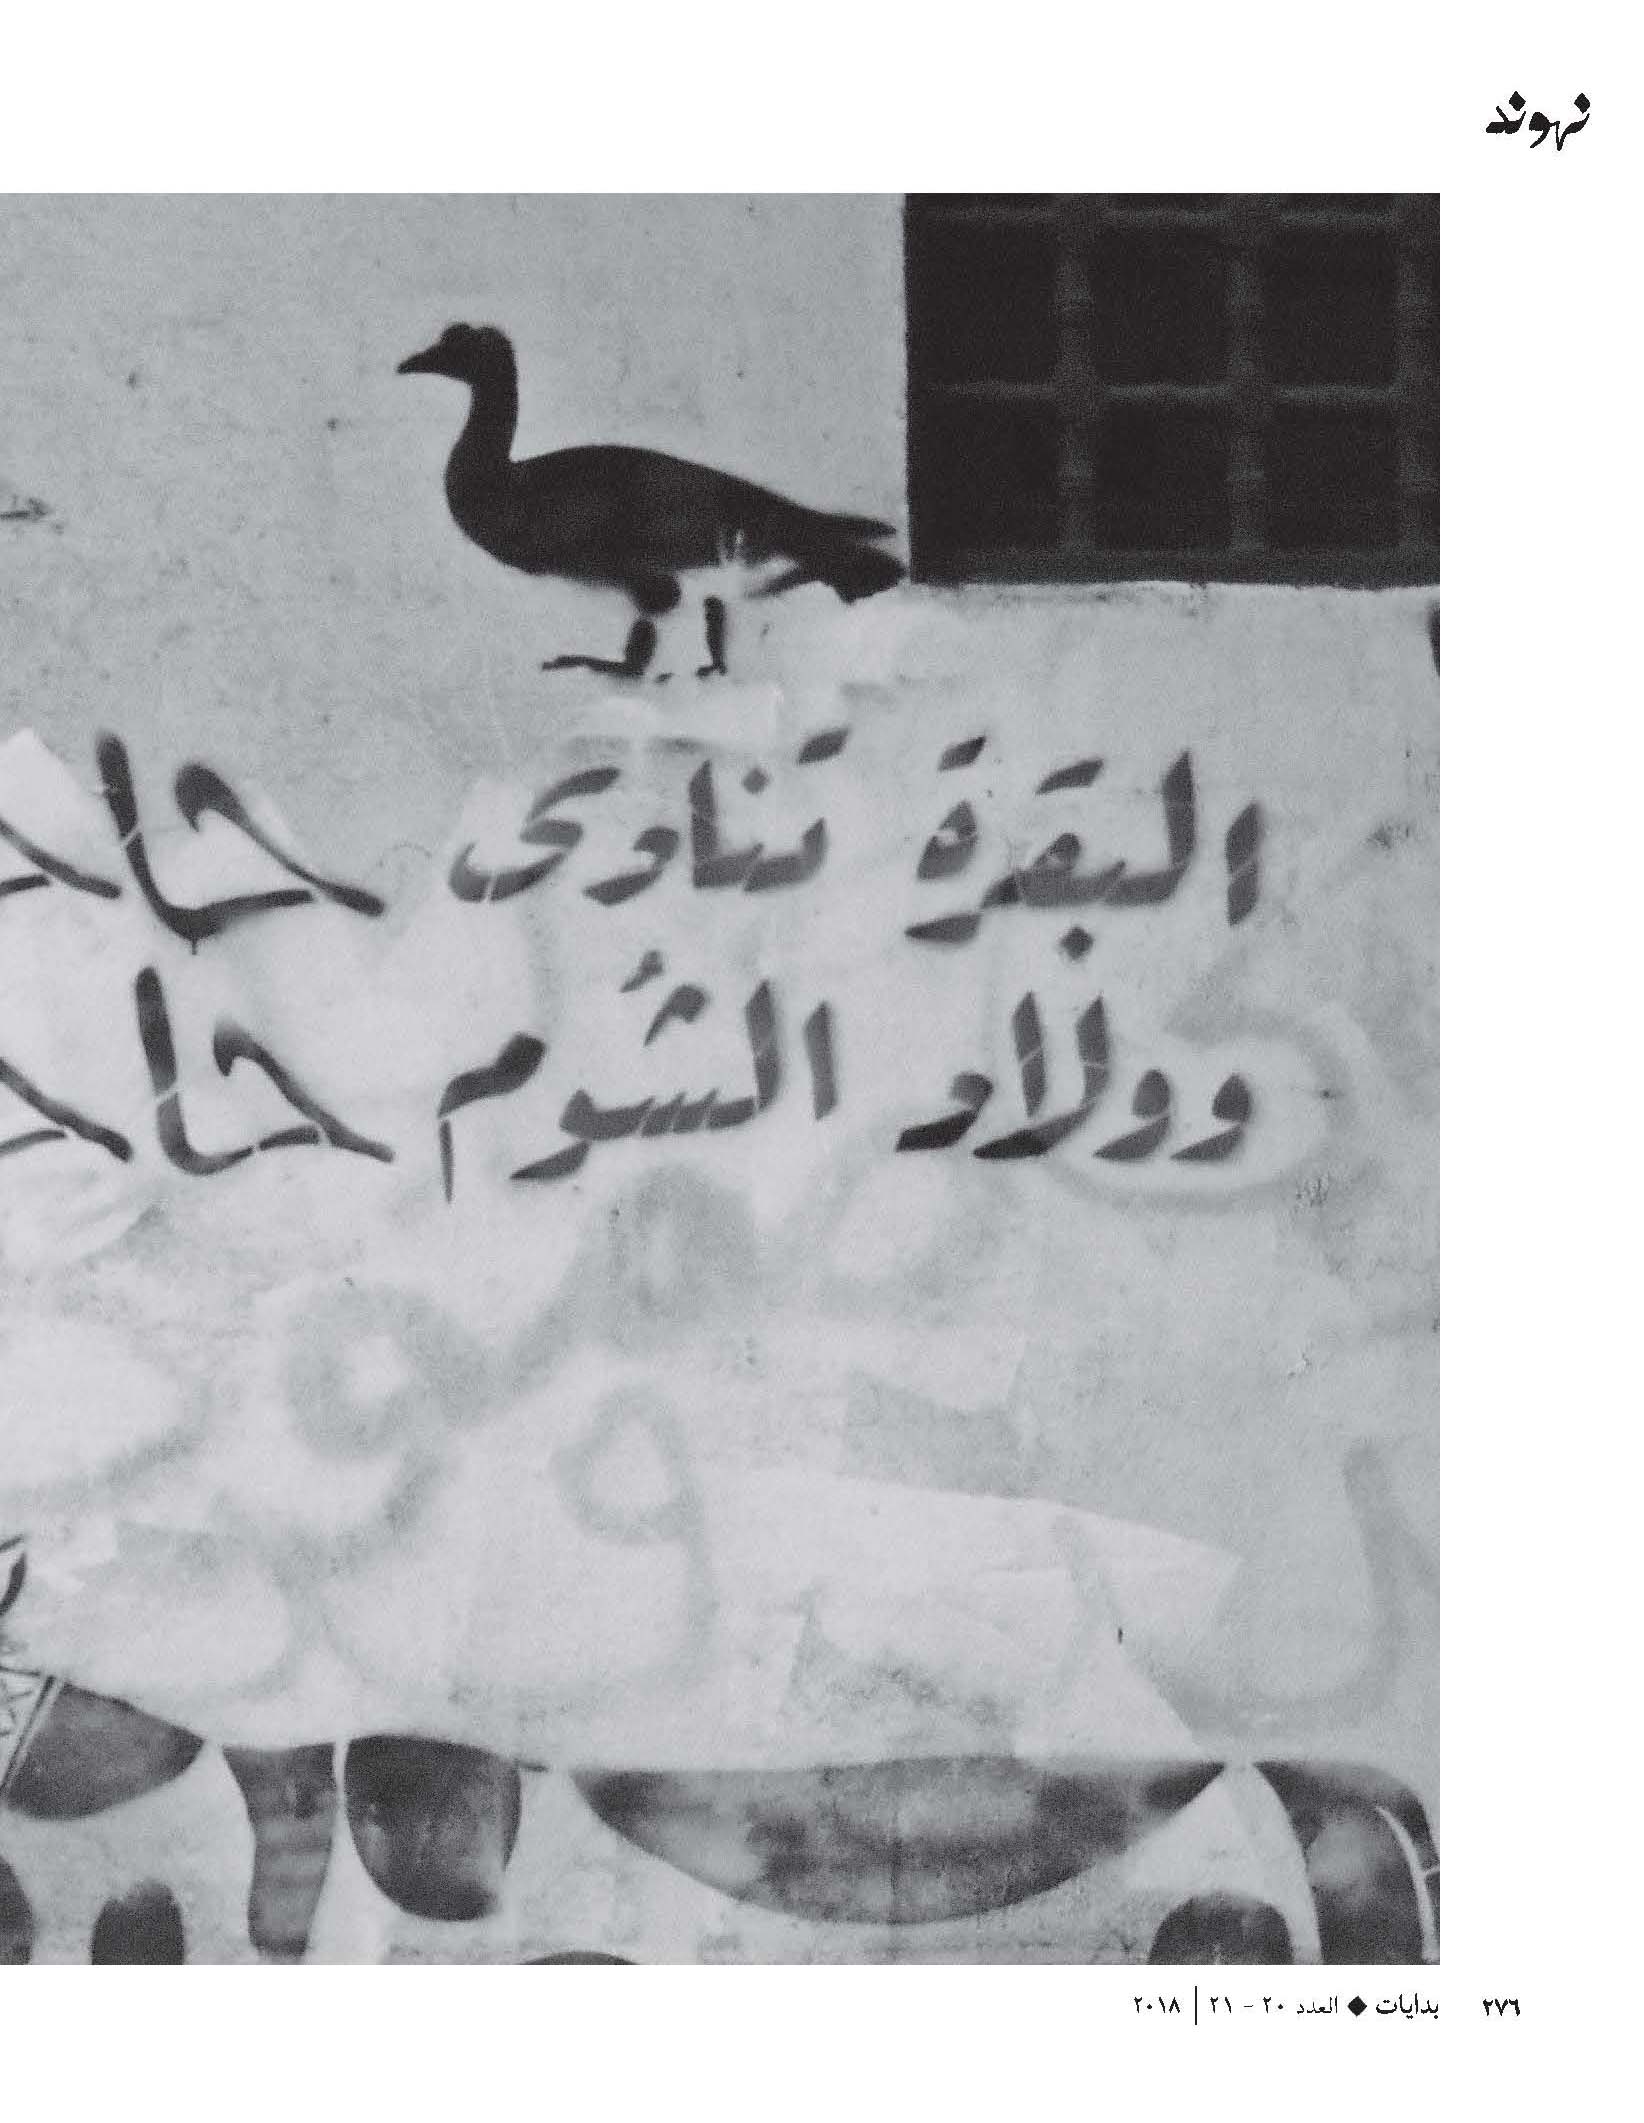 نهوند
البقرة تنادى حا
وولاد الشُوم حا
٢٧٦ بدايات ◆ العدد ٢٠ - ٢١ | ٢٠١٨